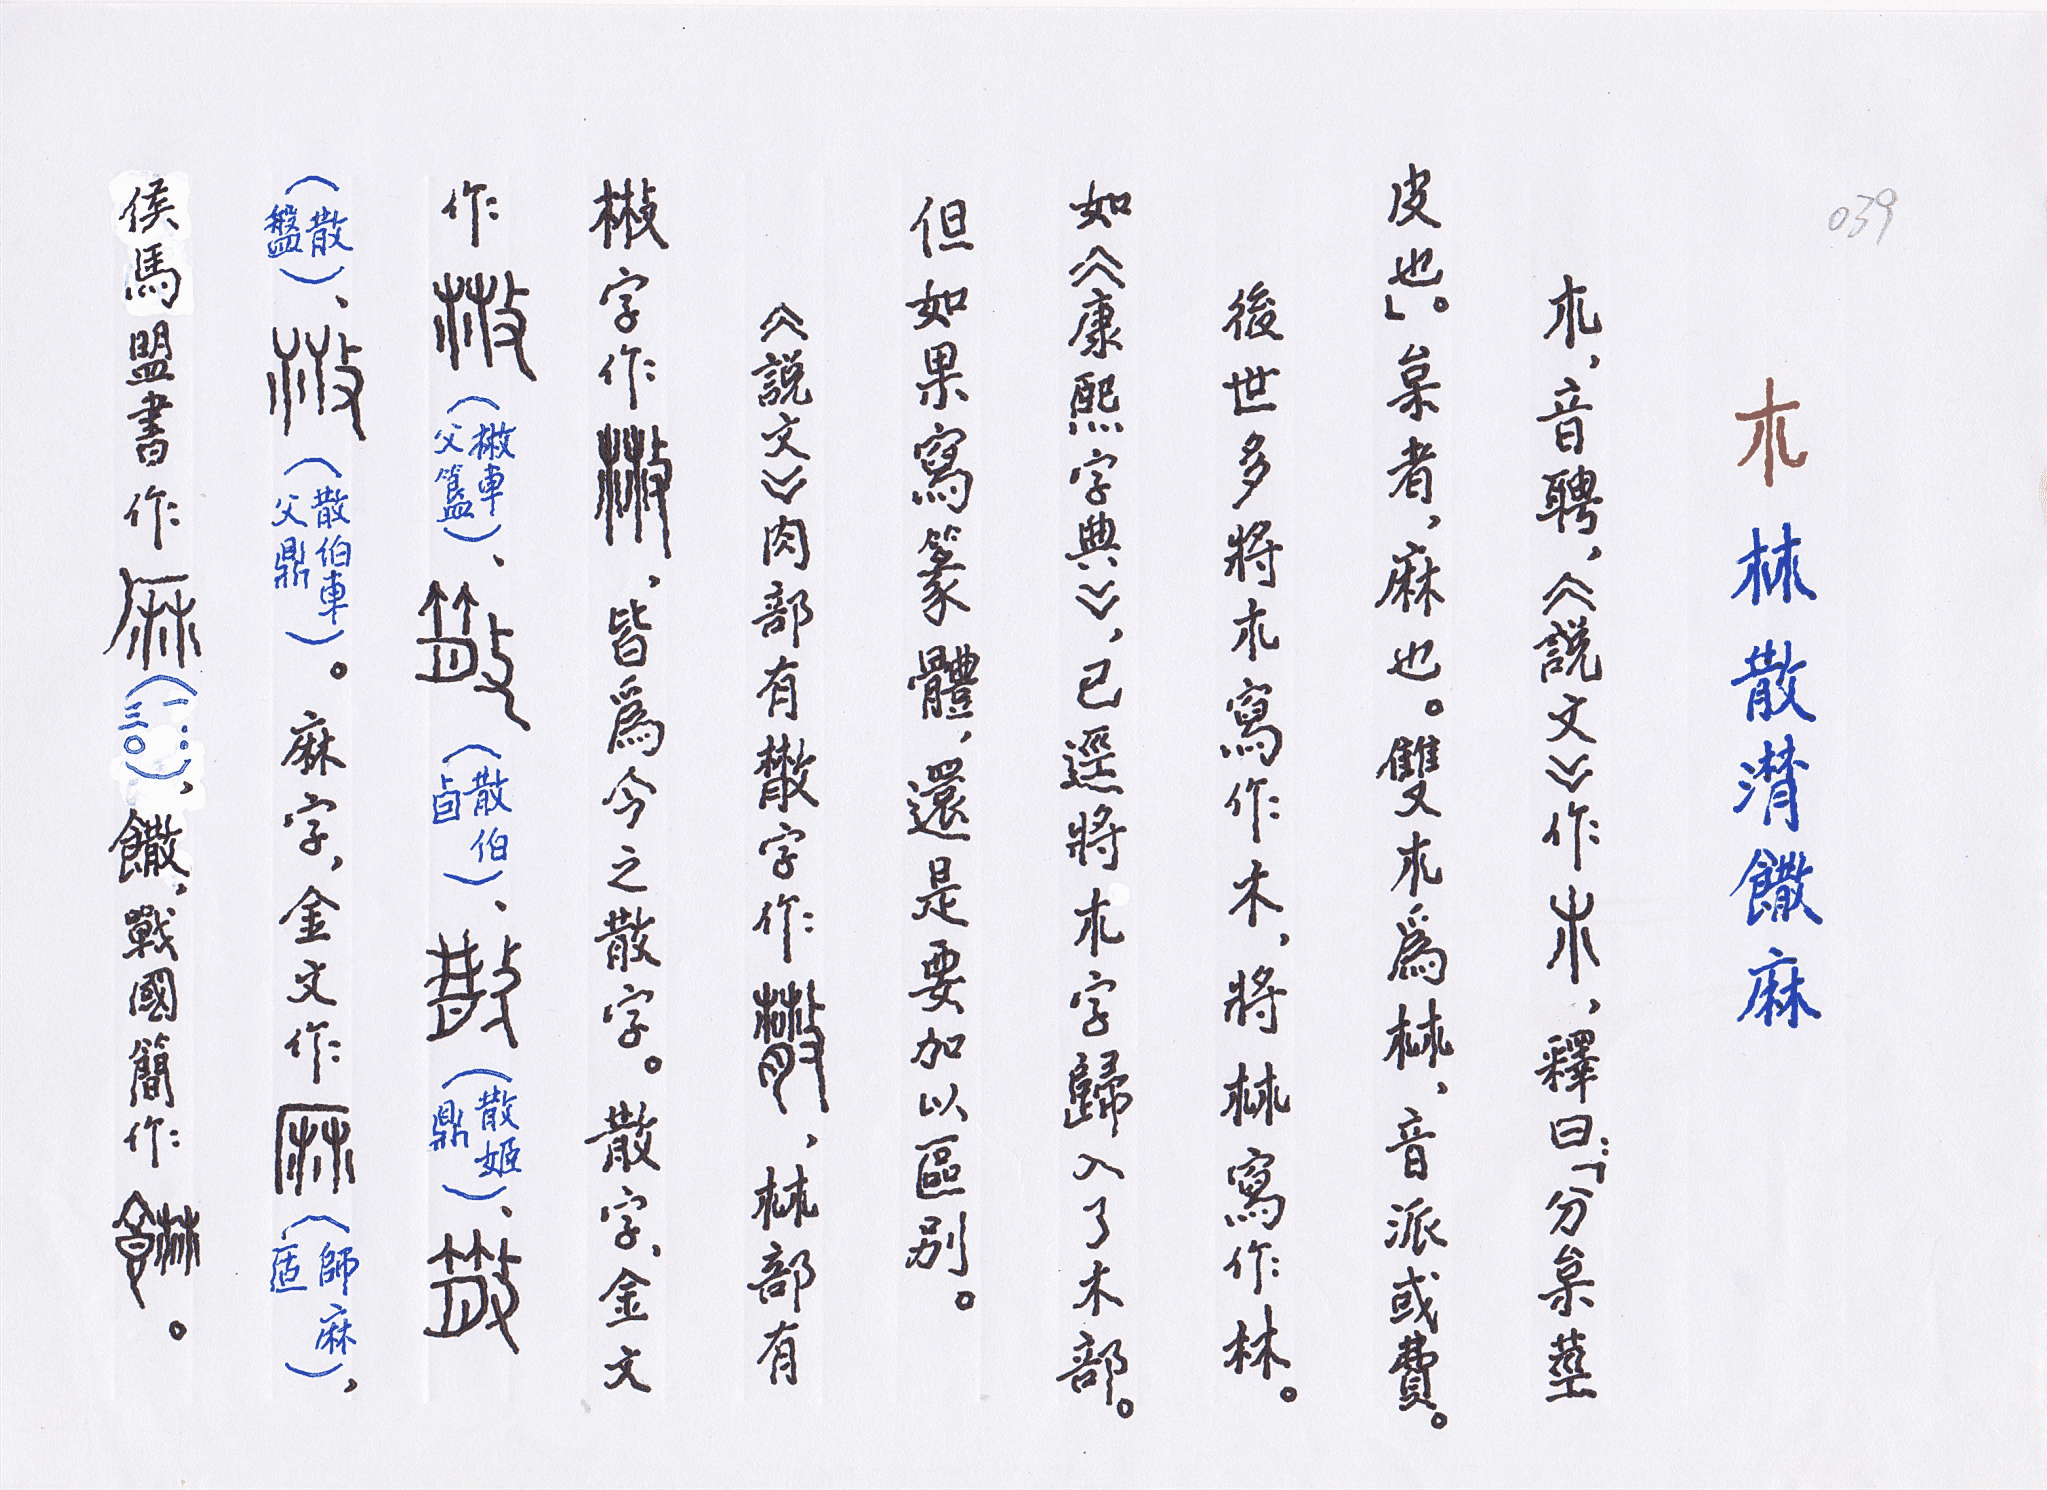 039
朩𣏟散潸饊麻
朩，音聘，《説文》作，釋曰：「分枲莖
皮也」。枲者，麻也。雙朩爲𣏟，音派或費。
後世多將朩寫作木，將𣏟寫作林。
如《康熙字典》，已逕將朩字歸入了木部。
但如果寫篆體，還是要加以區别。
《説文》肉部有㪔字作，𣏟部有
㪔字作，皆爲今之散字。散字、金文
作（㪔車父簋）、（散伯卣）、（散姬鼎）、
（散盤）、（散伯車父鼎）。麻字，金文作（師麻𠤳），
侯馬盟書作（一：三〇），饊，戰國簡作。